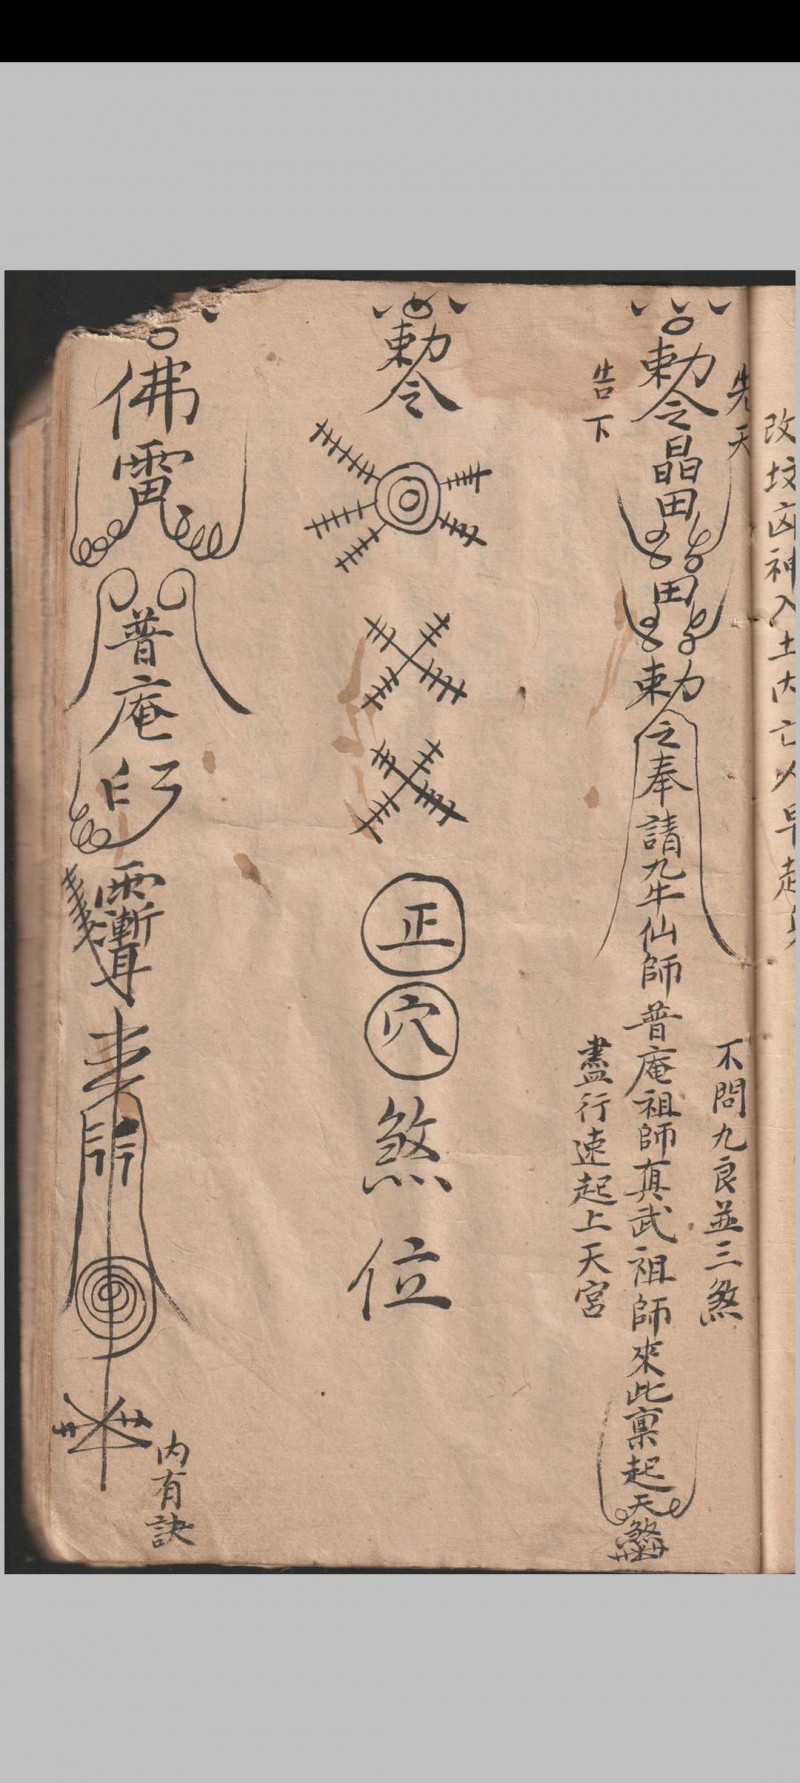 改坟凶神入土内亡人早起
先天
不問九良並三煞
勅令晶田
田
勅令奉請九牛仙師普庵祖師真武祖師來此禀起天煞
告下
盡行速起上天宮
勅令
正
穴
煞位
佛
普庵印
内有訣